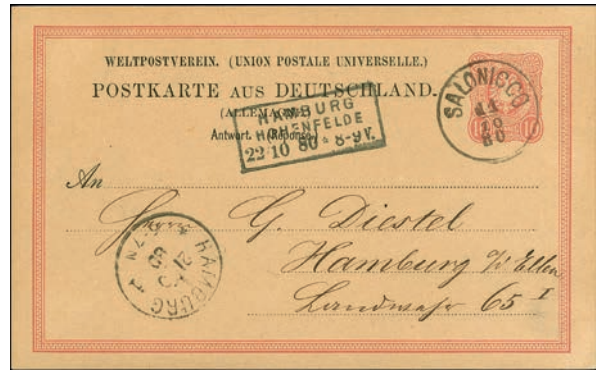 WELTPOSTVEREIN. (UNION POSTALE UNIVERSELLE.)
POSTKARTE AUS DEUTSCHLAND.
(ALLEMAGNE)
Antwort. (Réponse.)
HAMBURG
HOHENFELDE
22 10 80 * 8-9V.
SALONICCO
10
80
10 10
An
Herrn G. Diestel
Hamburg
Landwehr 65 I
HAMBURG 1
21
10
80
7 N